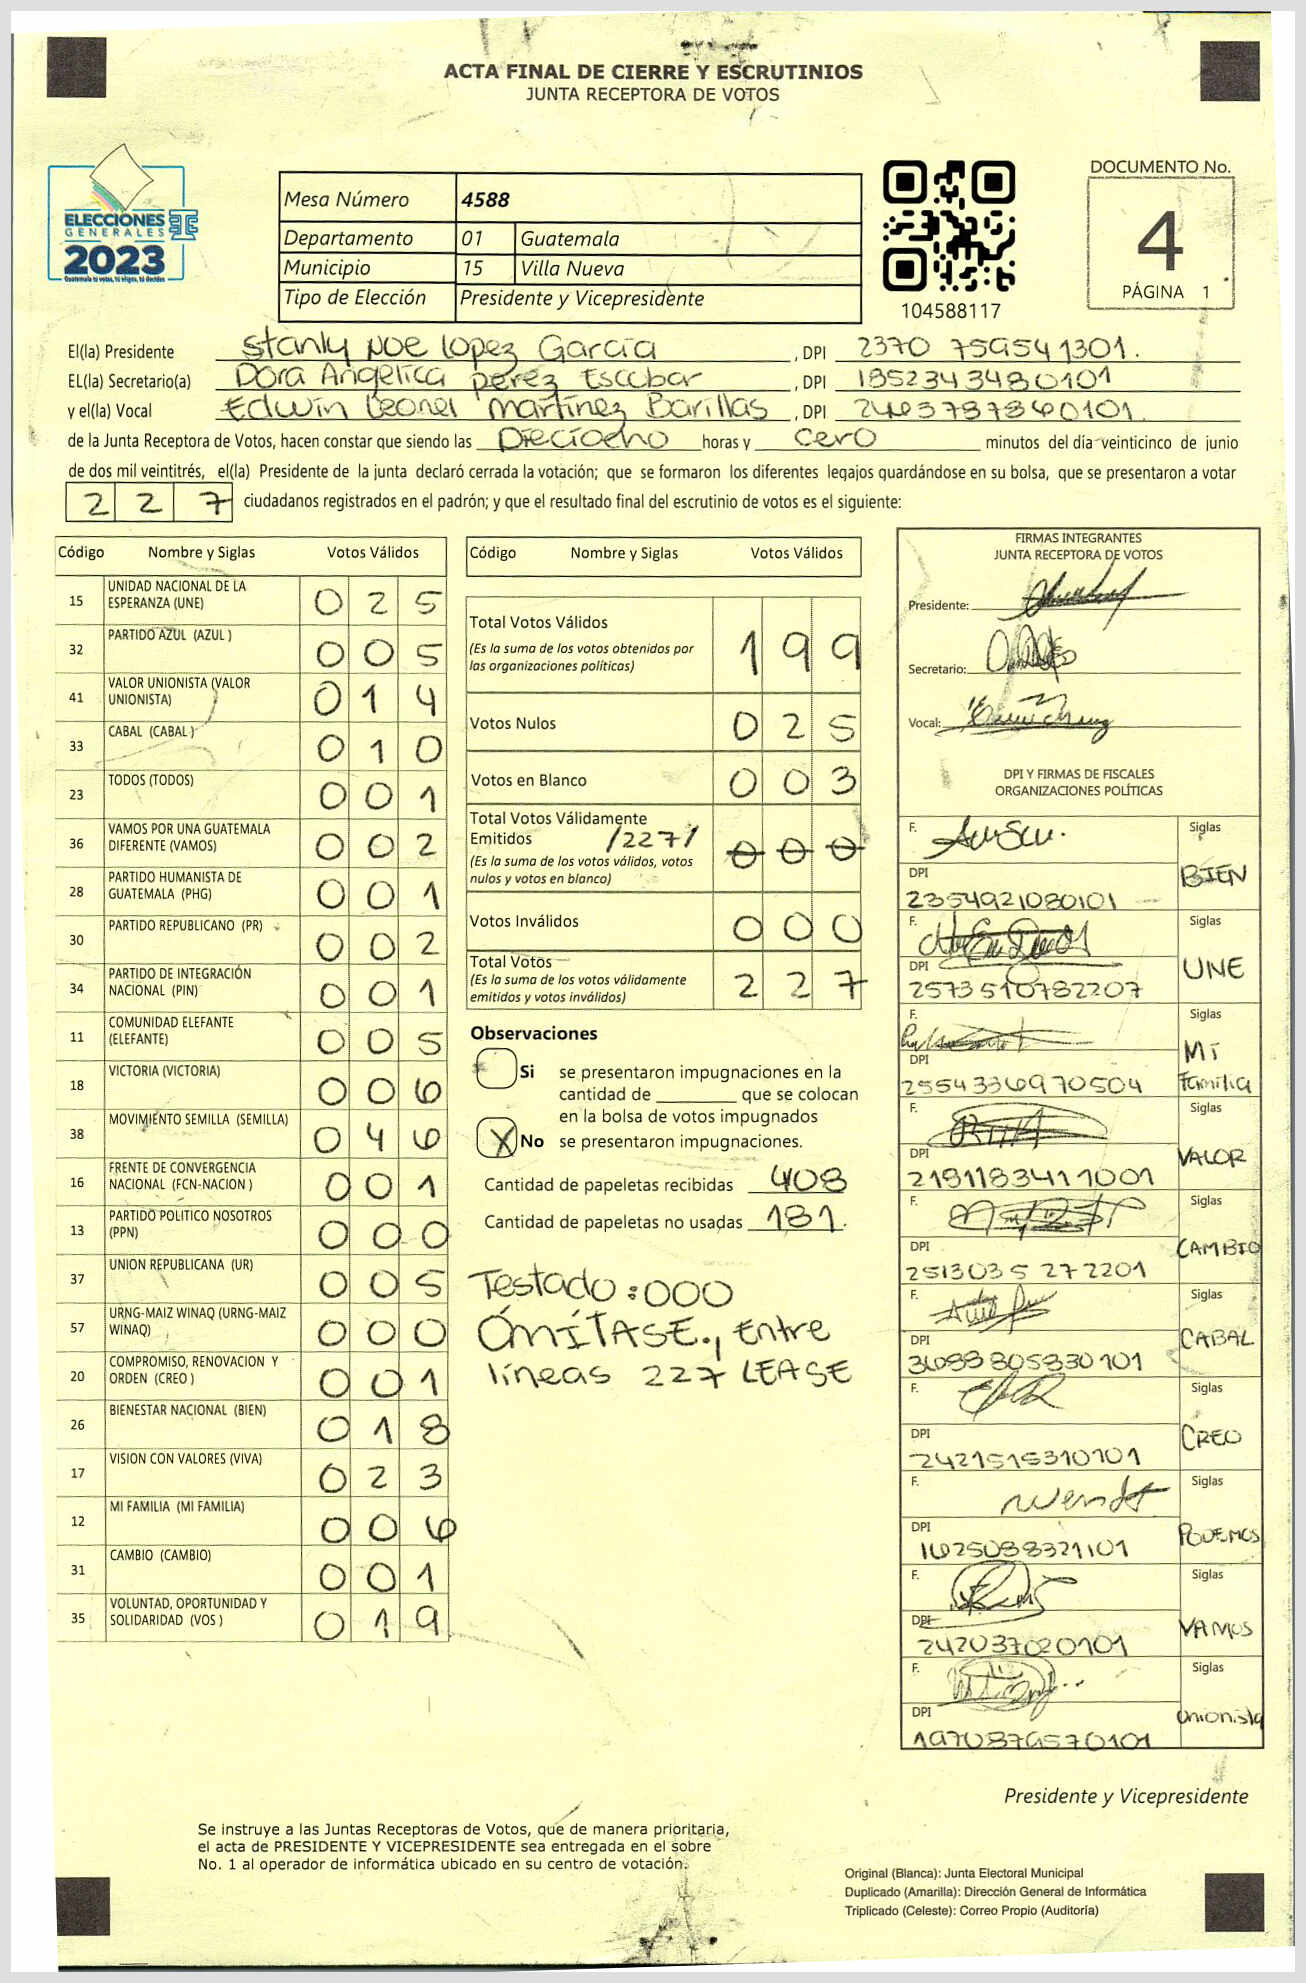 ACTA FINAL DE CIERRE Y ESCRUTINIOS
JUNTA RECEPTORA DE VOTOS
ELECCIONES
GENERALES
2023
Guatemala tú votas, tú eliges, tú decides
Mesa Número 4588
Departamento 01 Guatemala
Municipio 15 Villa Nueva
Tipo de Elección Presidente y Vicepresidente
104588117
DOCUMENTO No.
4
PÁGINA 1
El(la) Presidente Stanly Noe Lopez García , DPI 2370 759541301.
EL(la) Secretario(a) Dora Angélica perez Escobar , DPI 1852343480101
y el(la) Vocal Edwin Leonel Martínez Barillas , DPI 2463787860101.
de la Junta Receptora de Votos, hacen constar que siendo las Dieciocho horas y cero minutos del día veinticinco de junio
de dos mil veintitrés, el(la) Presidente de la junta declaró cerrada la votación; que se formaron los diferentes legajos quardándose en su bolsa, que se presentaron a votar
2 2 7 ciudadanos registrados en el padrón; y que el resultado final del escrutinio de votos es el siguiente:
Código Nombre y Siglas Votos Válidos
15 UNIDAD NACIONAL DE LA ESPERANZA (UNE) 0 2 5
32 PARTIDO AZUL (AZUL ) 0 0 5
41 VALOR UNIONISTA (VALOR UNIONISTA) 0 1 4
33 CABAL (CABAL ) 0 1 0
23 TODOS (TODOS) 0 0 1
36 VAMOS POR UNA GUATEMALA DIFERENTE (VAMOS) 0 0 2
28 PARTIDO HUMANISTA DE GUATEMALA (PHG) 0 0 1
30 PARTIDO REPUBLICANO (PR) 0 0 2
34 PARTIDO DE INTEGRACIÓN NACIONAL (PIN) 0 0 1
11 COMUNIDAD ELEFANTE (ELEFANTE) 0 0 5
18 VICTORIA (VICTORIA) 0 0 6
38 MOVIMIENTO SEMILLA (SEMILLA) 0 4 6
16 FRENTE DE CONVERGENCIA NACIONAL (FCN-NACION ) 0 0 1
13 PARTIDO POLITICO NOSOTROS (PPN) 0 0 0
37 UNION REPUBLICANA (UR) 0 0 5
57 URNG-MAIZ WINAQ (URNG-MAIZ WINAQ) 0 0 0
20 COMPROMISO, RENOVACION Y ORDEN (CREO ) 0 0 1
26 BIENESTAR NACIONAL (BIEN) 0 1 8
17 VISION CON VALORES (VIVA) 0 2 3
12 MI FAMILIA (MI FAMILIA) 0 0 6
31 CAMBIO (CAMBIO) 0 0 1
35 VOLUNTAD, OPORTUNIDAD Y SOLIDARIDAD (VOS ) 0 1 9
Código Nombre y Siglas Votos Válidos
Total Votos Válidos 1 9 9
(Es la suma de los votos obtenidos por
las organizaciones políticas)
Votos Nulos 0 2 5
Votos en Blanco 0 0 3
Total Votos Válidamente
Emitidos /227/ 0 0 0
(Es la suma de los votos válidos, votos
nulos y votos en blanco)
Votos Inválidos 0 0 0
Total Votos 2 2 7
(Es la suma de los votos válidamente
emitidos y votos inválidos)
Observaciones
Si se presentaron impugnaciones en la
cantidad de ________ que se colocan
en la bolsa de votos impugnados
X No se presentaron impugnaciones.
Cantidad de papeletas recibidas 408
Cantidad de papeletas no usadas 181.
Testado:000
OMÍTASE., Entre
líneas 227 LEASE
FIRMAS INTEGRANTES
JUNTA RECEPTORA DE VOTOS
Presidente:
Secretario:
Vocal:
DPI Y FIRMAS DE FISCALES
ORGANIZACIONES POLÍTICAS
F. Siglas
DPI BIEN
2354921080101
F. Siglas
DPI UNE
2573510782207
F. Siglas
DPI Mi Familia
2554336970504
F. Siglas
DPI VALOR
2181183411001
F. Siglas
DPI CAMBIO
2513035 272201
F. Siglas
DPI CABAL
3088805830101
F. Siglas
DPI CREO
2421515310101
F. Siglas
DPI PODEMOS
1625088321101
F. Siglas
DPI VAMOS
242037020101
F. Siglas
DPI Unionista
1970879570101
Presidente y Vicepresidente
Se instruye a las Juntas Receptoras de Votos, que de manera prioritaria,
el acta de PRESIDENTE Y VICEPRESIDENTE sea entregada en el sobre
No. 1 al operador de informática ubicado en su centro de votación.
Original (Blanca): Junta Electoral Municipal
Duplicado (Amarilla): Dirección General de Informática
Triplicado (Celeste): Correo Propio (Auditoría)